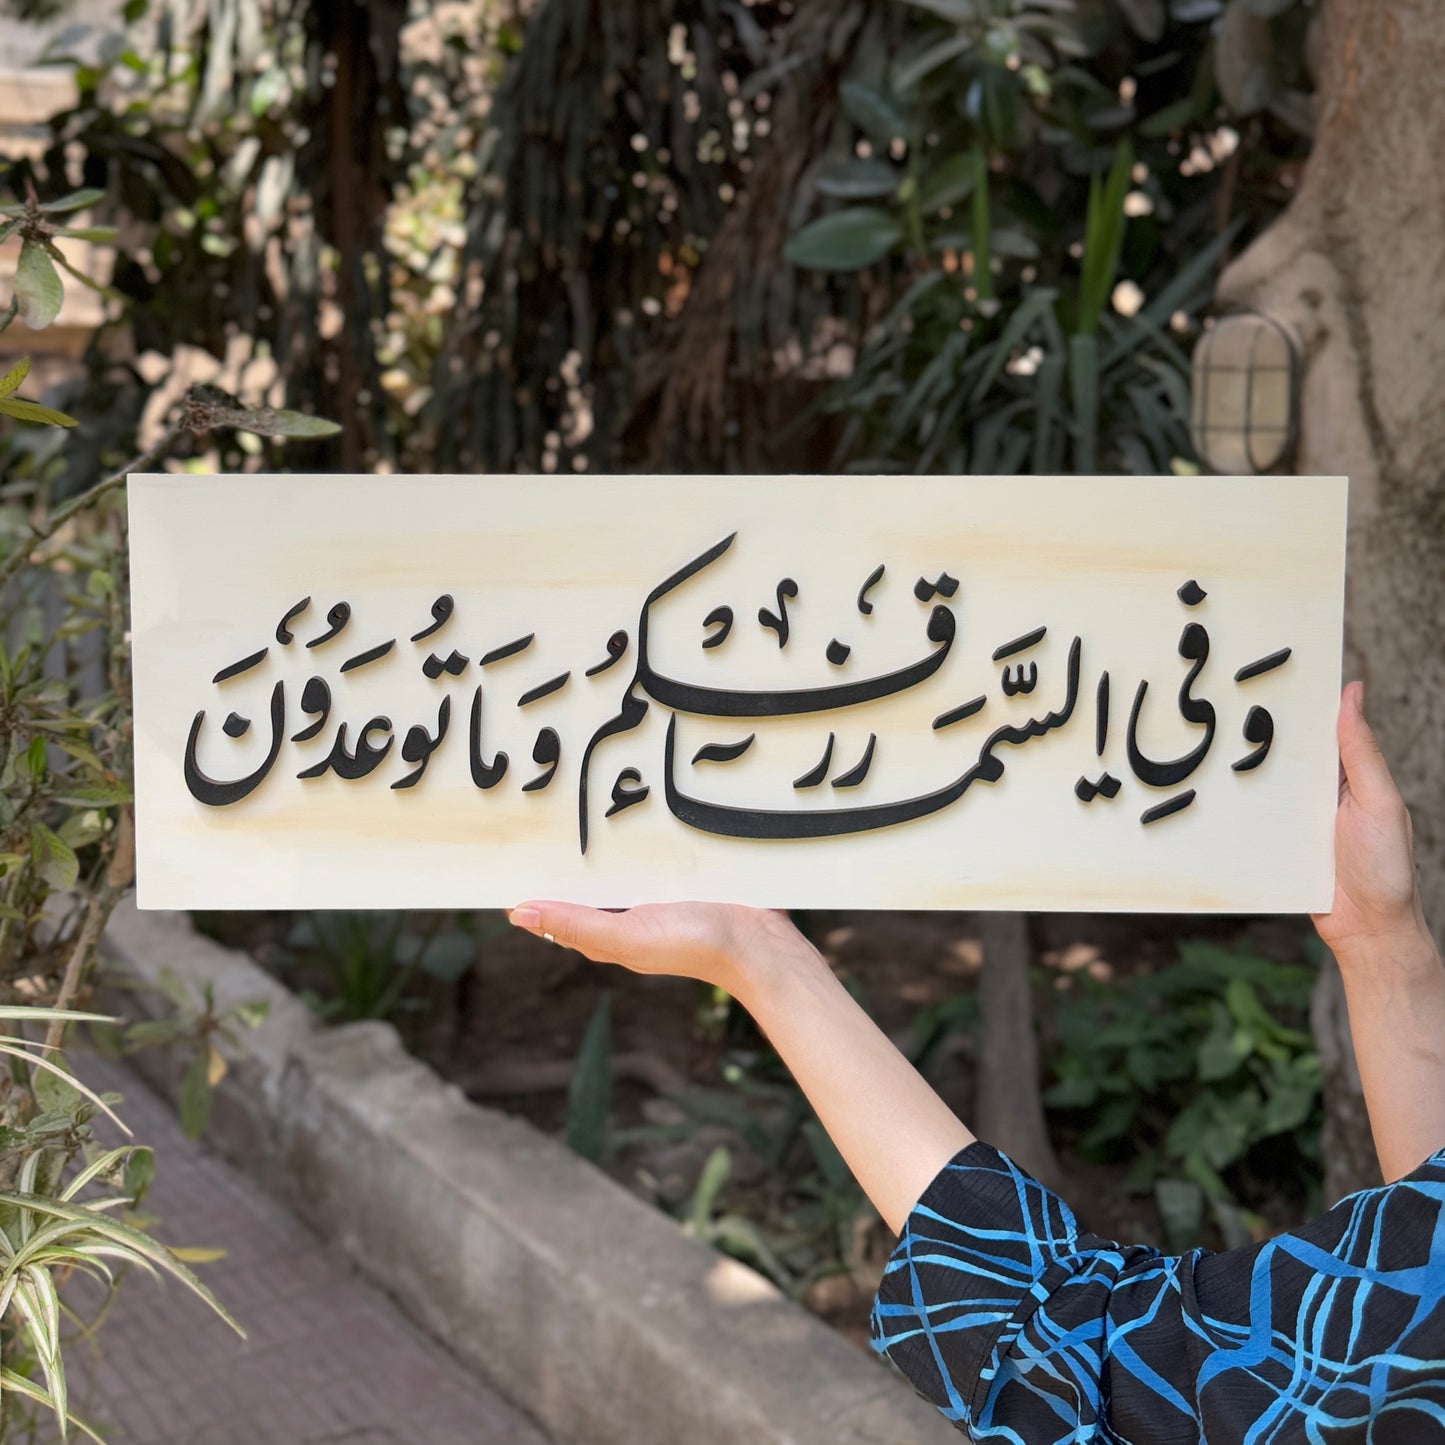 وَفِي السَّمَآءِ رِزْقُكُمْ وَمَا تُوعَدُونَ